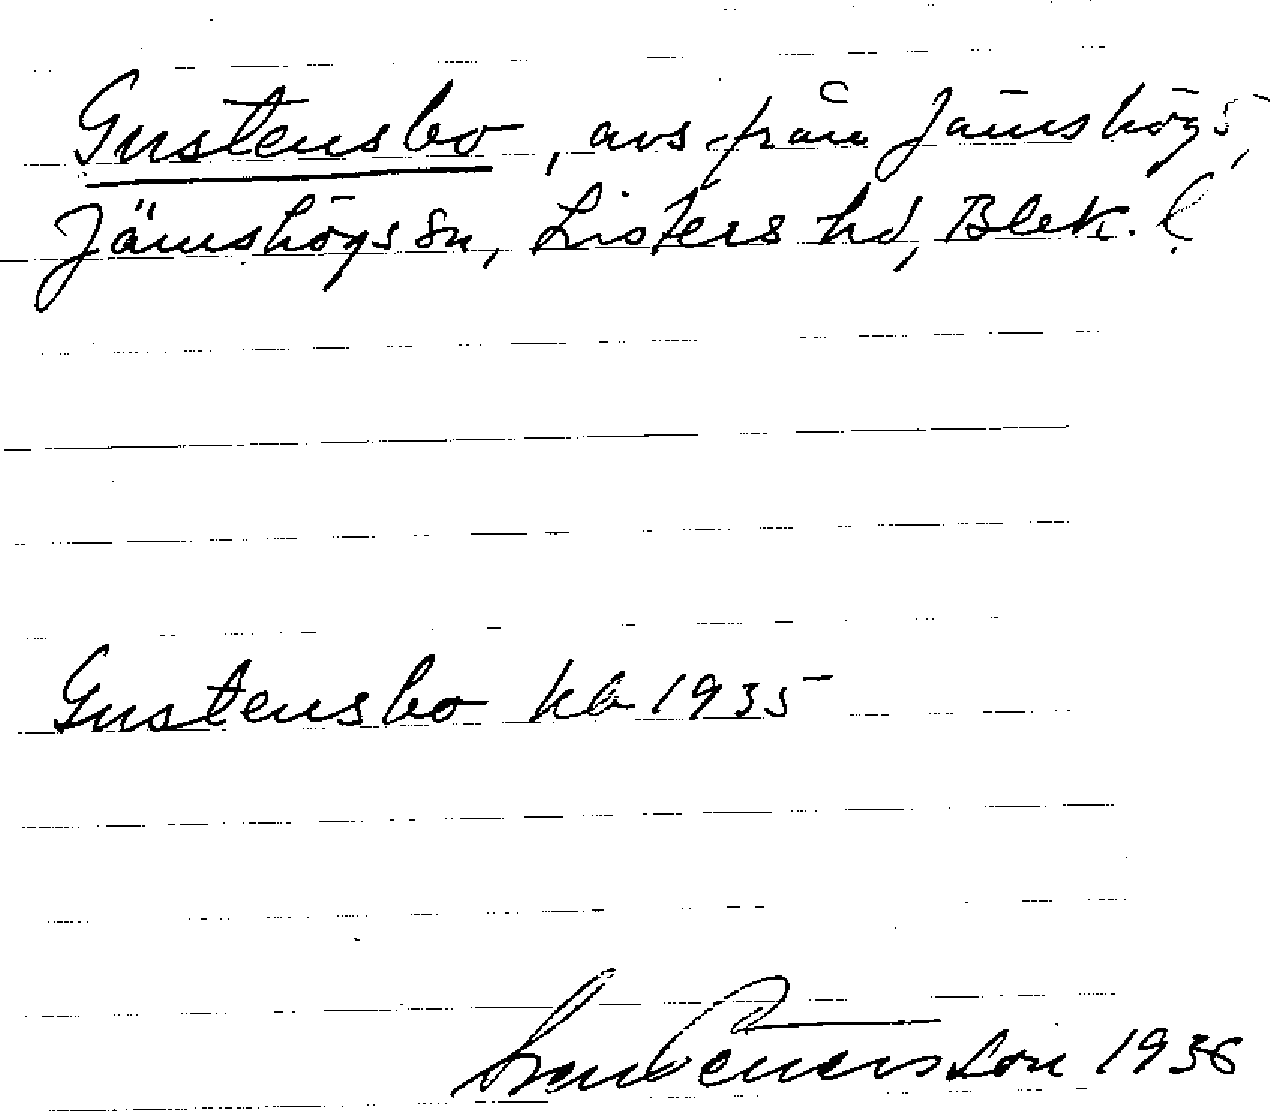 Gustensbo, avs från Jämshög 5,
Jämshögs sn, Listers hd, Blek. l.
Gustensbo kb 1935
1936